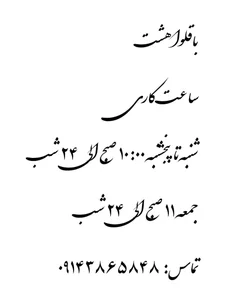 باقلوا هشت
ساعت کاری
شنبه تا پنجشنبه ۱۰:۰۰ صبح الی ۲۴ شب
جمعه ۱۱ صبح الی ۲۴ شب
تماس: ۰۹۱۴۳۸۶۵۸۴۸